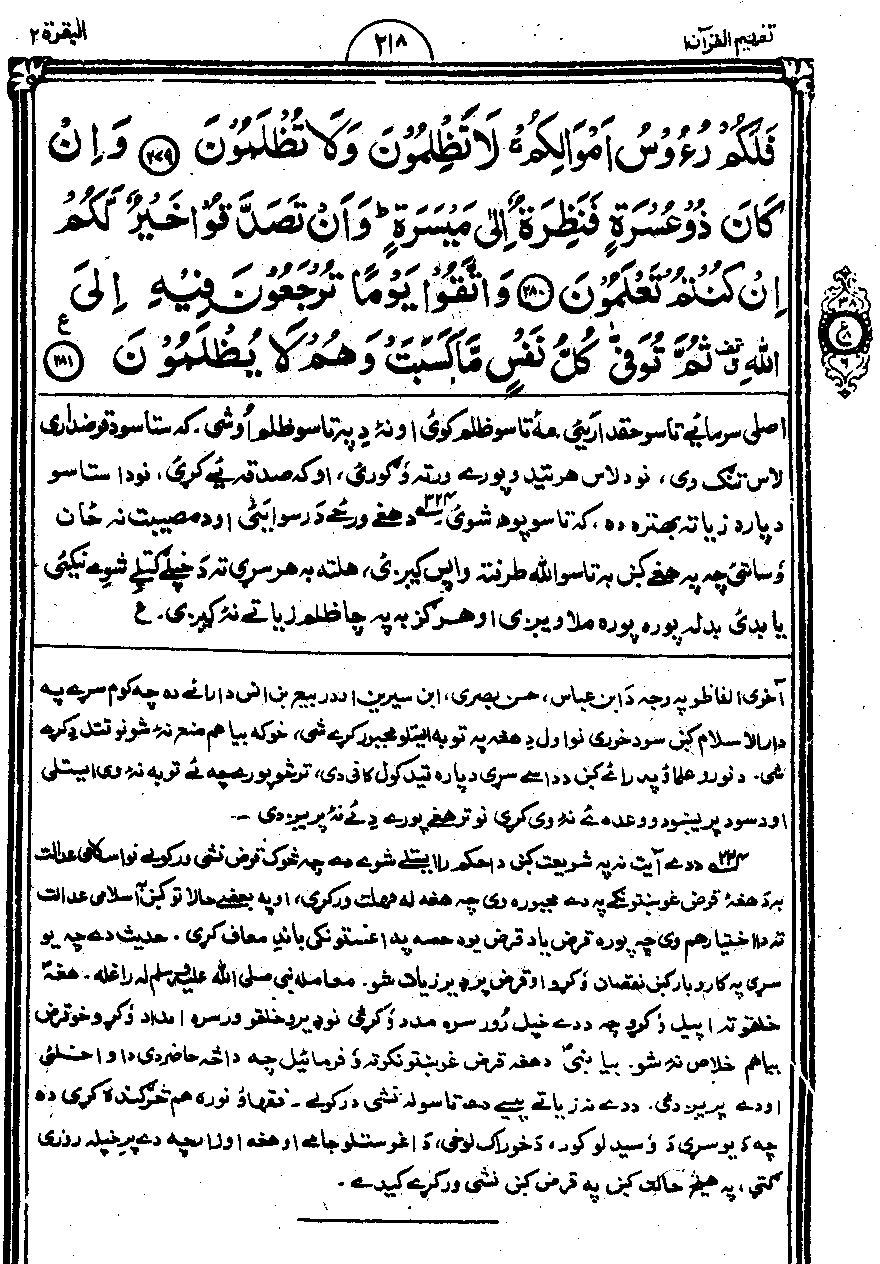 البقرة ٢
٢١٨
تفهيم القرآن١
فَلَكُمْ رُءُوْسُ اَمْوَالِكُمْ ۚ لَا تَظْلِمُوْنَ وَلَا تُظْلَمُوْنَ ﴿۲۷۹﴾ وَاِنْ
كَانَ ذُوْ عُسْرَةٍ فَنَظِرَةٌ اِلٰى مَيْسَرَةٍ ؕ وَاَنْ تَصَدَّقُوْا خَيْرٌ لَّكُمْ
اِنْ كُنْتُمْ تَعْلَمُوْنَ ﴿۲۸۰﴾ وَاتَّقُوْا يَوْمًا تُرْجَعُوْنَ فِيْهِ اِلَى
اللّٰهِ ۟ ثُمَّ تُوَفّٰى كُلُّ نَفْسٍ مَّا كَسَبَتْ وَهُمْ لَا يُظْلَمُوْنَ ﴿۲۸۱﴾ ع
۳۸
ع
۸
۶
اصلی سرمائے تاسو حقدار یئی. مۀ تاسو ظلم کوئ او نۀ دِ په تاسو ظلم اُوشی. که ستاسو قرضداری
لاس تنګ وی، نو د لاس هر تید و پورے ورته وګورئ، او که صدقه ئے کړئ، نو دا ستاسو
دپاره زیاته بهتره ده، که تاسو پوهه شوئ ۳۲۴ؔ د هغے ورځے د رسوایئ او د مصیبت نه ځان
وساتئ چه په هغے کښ به تاسو الله طرفته واپس کیږی، هلته به هر سړی ته دَ خپلے ګټلے شوے نیکئی
یا بدئ بدله پوره پوره ملاویږی او هرګز به په چا ظلم زیاتے نۀ کیږی. ع
آخری الفاظو په وجه دَ ابن عباس، حسن بصری، ابن سیرین او د ربیع بن انس دا رائے ده چه کوم سړے په
دارالاسلام کښ سود خوری نو اول دِ هغه په توبه ایستلو مجبور کړے شی، خو که بیا هم منع نۀ شو نو قتل دِ کړے
شی. د نورو علماؤ په رائے کښ د داسے سړی دپاره قید کول کافی دی، ترڅو پورے چه ئے توبه نۀ وی ایستلی
او د سود پریښودو وعده ئے نۀ وی کړی نو تر هغے پورے دِ ئے نۀ پریږدی ـ
۳۲۴ؔ د دے آیت نه په شریعت کښ دا حکم را ایستلے شوے دے چه څوک قرض نشی ورکولے نو اسلامی عدالت
به دَ هغۀ قرض غوښتونکے په دے مجبوره وی چه هغه له مهلت ورکړی، او په بعضے حالاتو کښ اسلامی عدالت
ته دا اختیار هم وی چه پوره قرض یا د قرض یوه حصه په اغستونکی باندِ معاف کړی. حدیث دے چه یو
سړی په کاروبار کښ نقصان وکړو او قرض پرِ ډیر زیات شو. معامله نبی صلی الله علیه وسلم له راغله. هغهؐ
خلقو ته اپیل وکړو چه د دے خپل رُور سره مدد وکړئ نو ډیرو خلقو ورسره امداد وکړو خو قرض
بیا هم خلاص نۀ شو. بیا نبیؐ د هغه قرض غوښتونکو ته وفرمائیل چه دا څه حاضر دی دا واخلئ
او دے پریږدئ. د دے نه زیاتے پیسے د ده تاسو له نشی درکولے ـ فقهاؤ نوره هم څرګنده کړی ده
چه دَ یو سړی دَ وسیدلو کور، دَ خوراک لوخی، دَ اغوستلو جامے او هغه اوزار چه دے پرِ خپله روزی
ګټی، په هیڅ حالت کښ په قرض کښ نشی ورکړے کیدے ـ